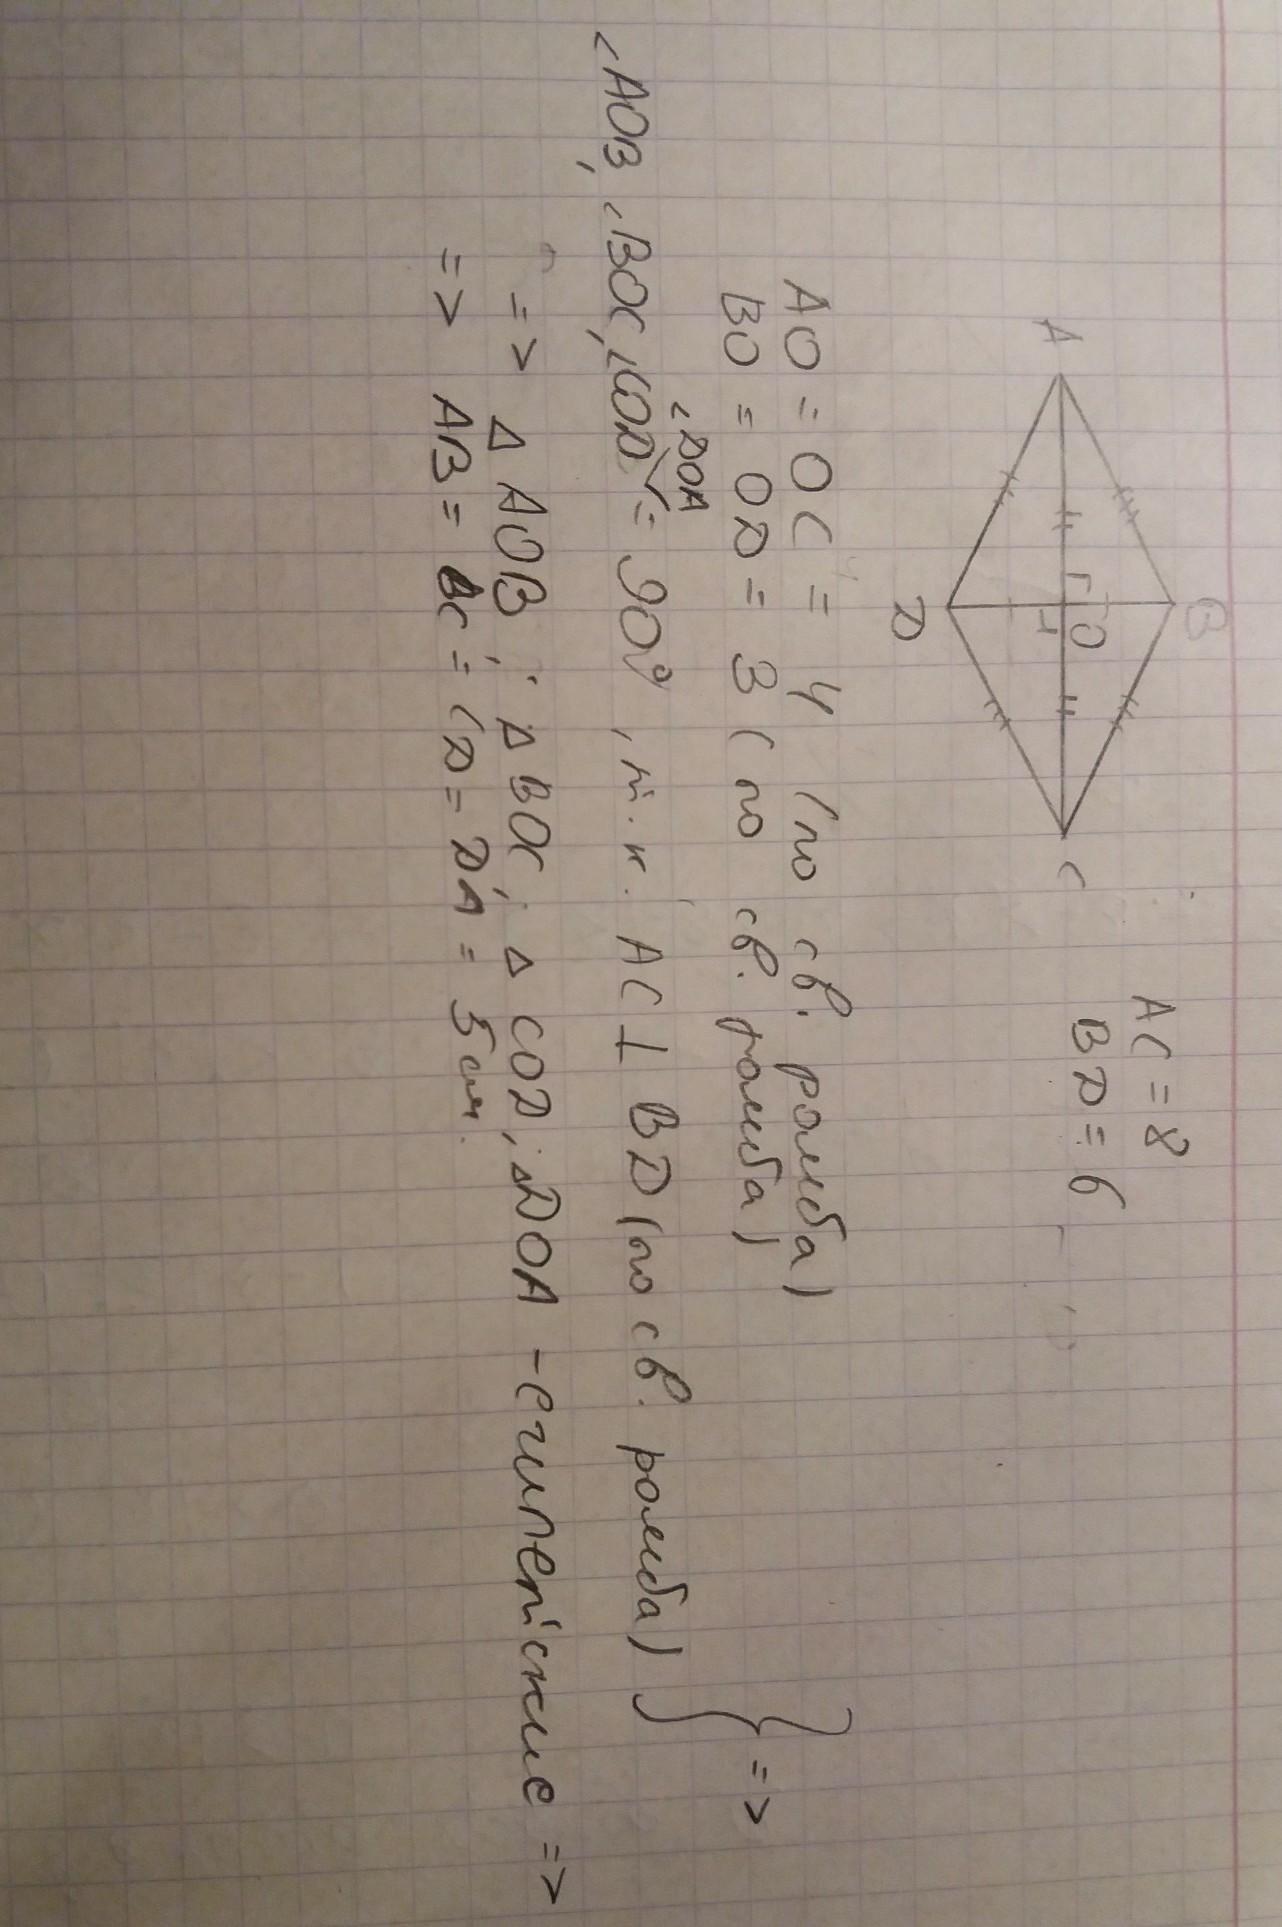 AC = 8
BD = 6
B
A
O
C
D
AO = OC = 4 (по св. ромба)
BO = OD = 3 (по св. ромба)
=>
∠DOA
∠AOB, ∠BOC, ∠COD = 90°, т.к. AC ⊥ BD (по св. ромба)
=> Δ AOB, Δ BOC, Δ COD, ΔDOA - египетские =>
=> AB = BC = CD = DA = 5 см.